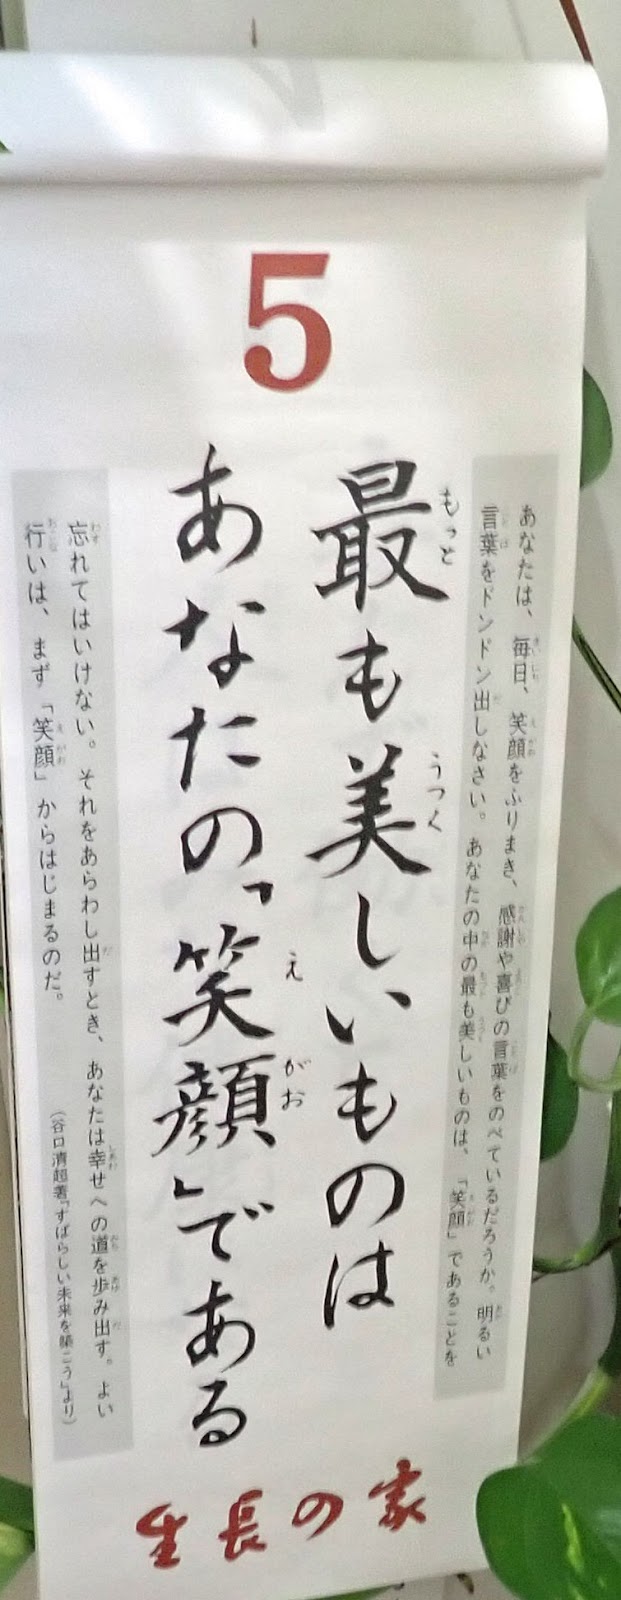 5
あなたは、毎日、笑顔をふりまき、感謝や喜びの言葉をのべているだろうか。明るい
言葉をドンドン出しなさい。あなたの中の最も美しいものは、「笑顔」であることを
最も美しいものは
あなたの「笑顔」である
忘れてはいけない。それをあらわし出すとき、あなたは幸せへの道を歩み出す。よい
行いは、まず「笑顔」からはじまるのだ。
(谷口清超著『すばらしい未来を築こう』より)
生長の家